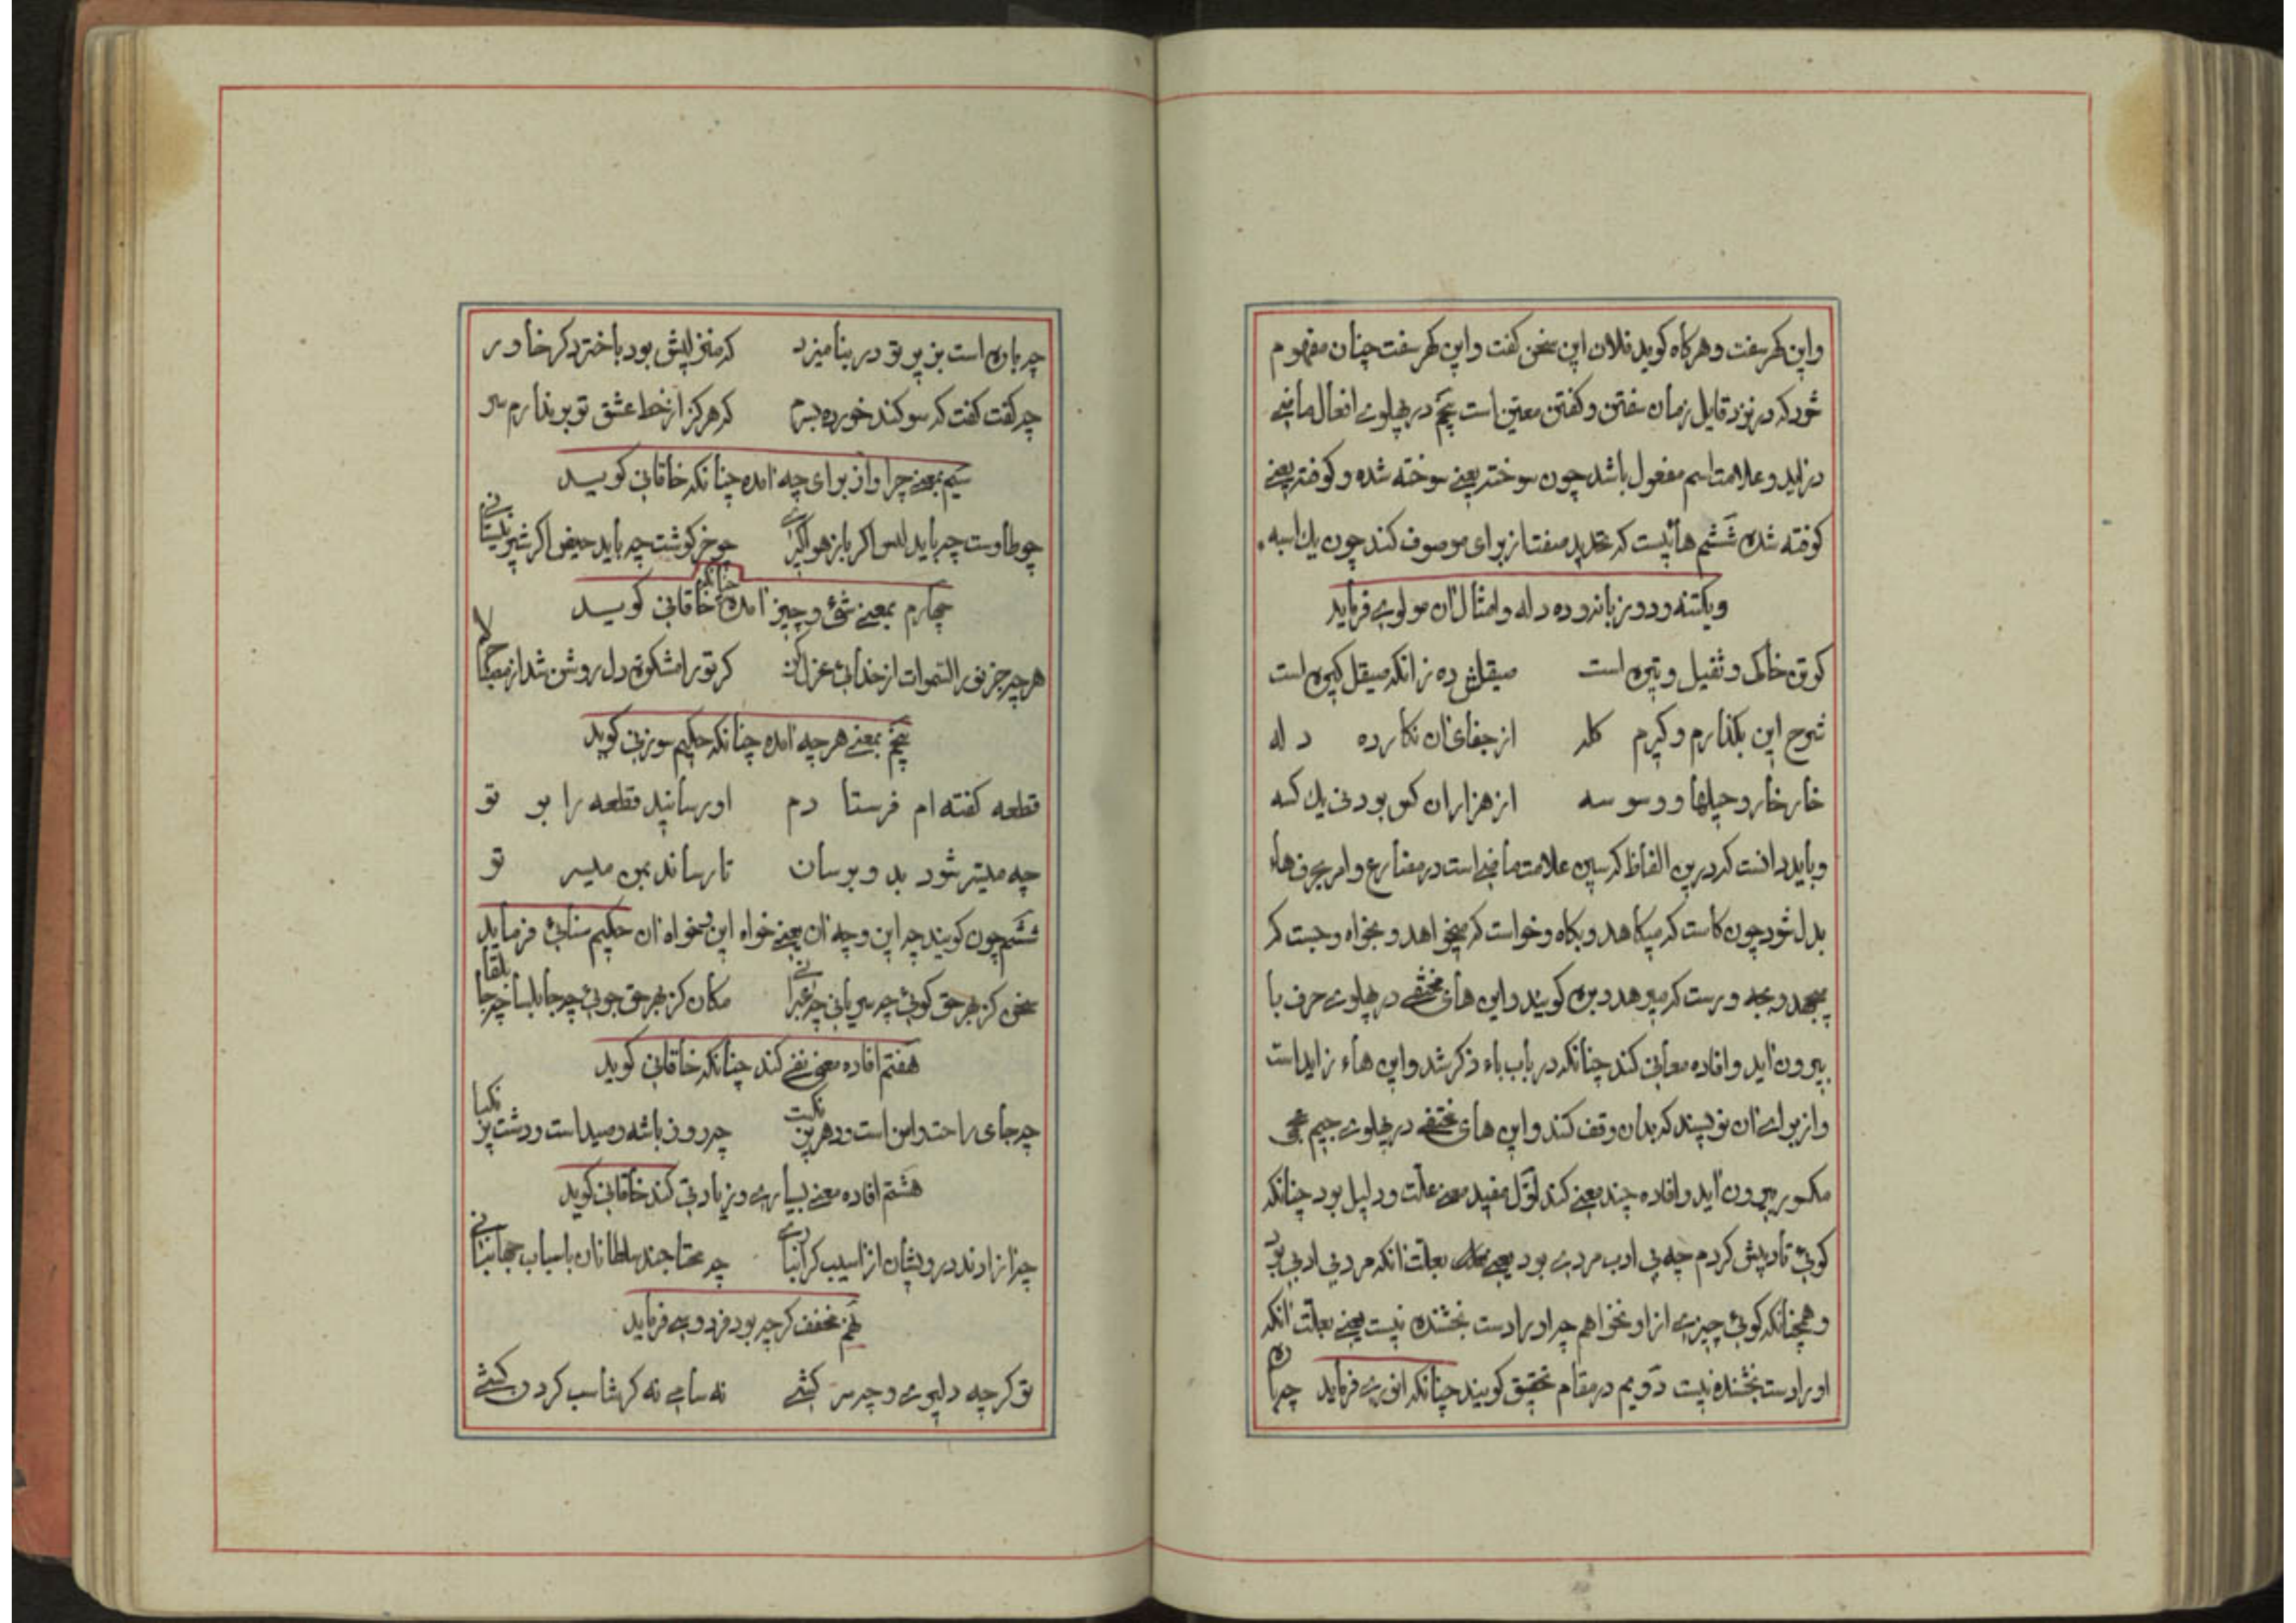 واین گهر سفت و هرگاه گوید فلان این سخن گفت و این گهر سفت چنان مفهوم
شود که در نزد قایل زمان سفتن و گفتن معین است پنجم در پهلوی افعال ماضی
در اید و علامت اسم مفعول باشد چون سوخته یعنی سوخته شده و کوفته یعنی
کوفته شده ششم هائیست که تحدید صفت از برای موصوف کند چون یک اسبه
و یکتنه و دو زبانه و ده دله و امثال ان مولوی فرماید
کو تن خاکی و ثقیل و تیره است صیقلش ده زانکه صیقل گیره است
شرح این بگذارم و گیرم گله از جفای ان نگار ده دله
خار خار و حیلها و وسوسه از هزاران کس بود نی یک کسه
و باید دانست که درین الفاظ که سین علامت ماضی است در مضارع و امر بحرف هاء
بدل شود چون کاست که میکاهد و بکاه و خواست که میخواهد و بخواه و جست که
میجهد و بجه و رست که میرهد و بره گویند و این های مختفی در پهلوی حرف با
بیرون اید و افاده معانی کند چنانکه در باب باء ذکر شد و این هاء زاید است
و از برای ان نویسند که بدان وقف کنند و این های مختفی در پهلوی جیم عجمی
مکسور بیرون اید و افاده چند معنی کند اول مفید معنی علت و دلیل بود چنانکه
گوئی تادیبش کردم چه بی ادب مردی بود یعنی بعلت انکه مردی بی ادب بود
و همچنانکه گوئی چیزی از او نخواهم چه او را دست بخشنده نیست یعنی بعلت انکه
او را دست بخشنده نیست دویم در مقام تحقیق گویند چنانکه انوری فرماید چه باره
چه باره است بزیر تو در بنامیزد که منزلیش بود باختر دگر خاور
چه گفت گفت که سوگند خورده بسرم که هرگز از خط عشق تو برندارم سر
سیم بمعنی چرا و از برای چه امده چنانکه خاقانی گوید
چو طاوست چه باید لبس اگر باز هواگیری چو خرگوشت چه باید حیض اگر شیر نیستانی
چهارم بمعنی شیء و چیز امده چنانکه خاقانی گوید
هر چه جز نور السموات از خدائی عزل کن گر تو را مشکوة دل روشن شد از مصباح لا
پنجم بمعنی هر چه امده چنانکه حکیم سوزنی گوید
قطعه گفته ام فرستادم او رسانید قطعه را بر تو
چه میسر شود بدو برسان تا رساند بمن میسر تو
ششم چون گویند چه این و چه ان یعنی خواه این و خواه ان حکیم سنائی فرماید
سخن کز بهر حق گوئی چه سریانی چه عبرانی مکان کز بهر حق جوئی چه جابلسا چه جابلقا
هفتم افاده معنی نفی کند چنانکه خاقانی گوید
چه جای راحت و امن است و دهر پر نکبت چه روز باشه و صید است و دشت پر نکبا
هشتم افاده معنی بسیاری و زیادتی کند خاقانی گوید
چه ازادند درویشان از اسیب گرانباری چه محتاجند سلطانان باسباب جهانبانی
نهم مخفف گرچه بود فردوسی فرماید
تو گر چه دلیری و چه سرکشی نه سامی نه گرشاسب گردن کشی